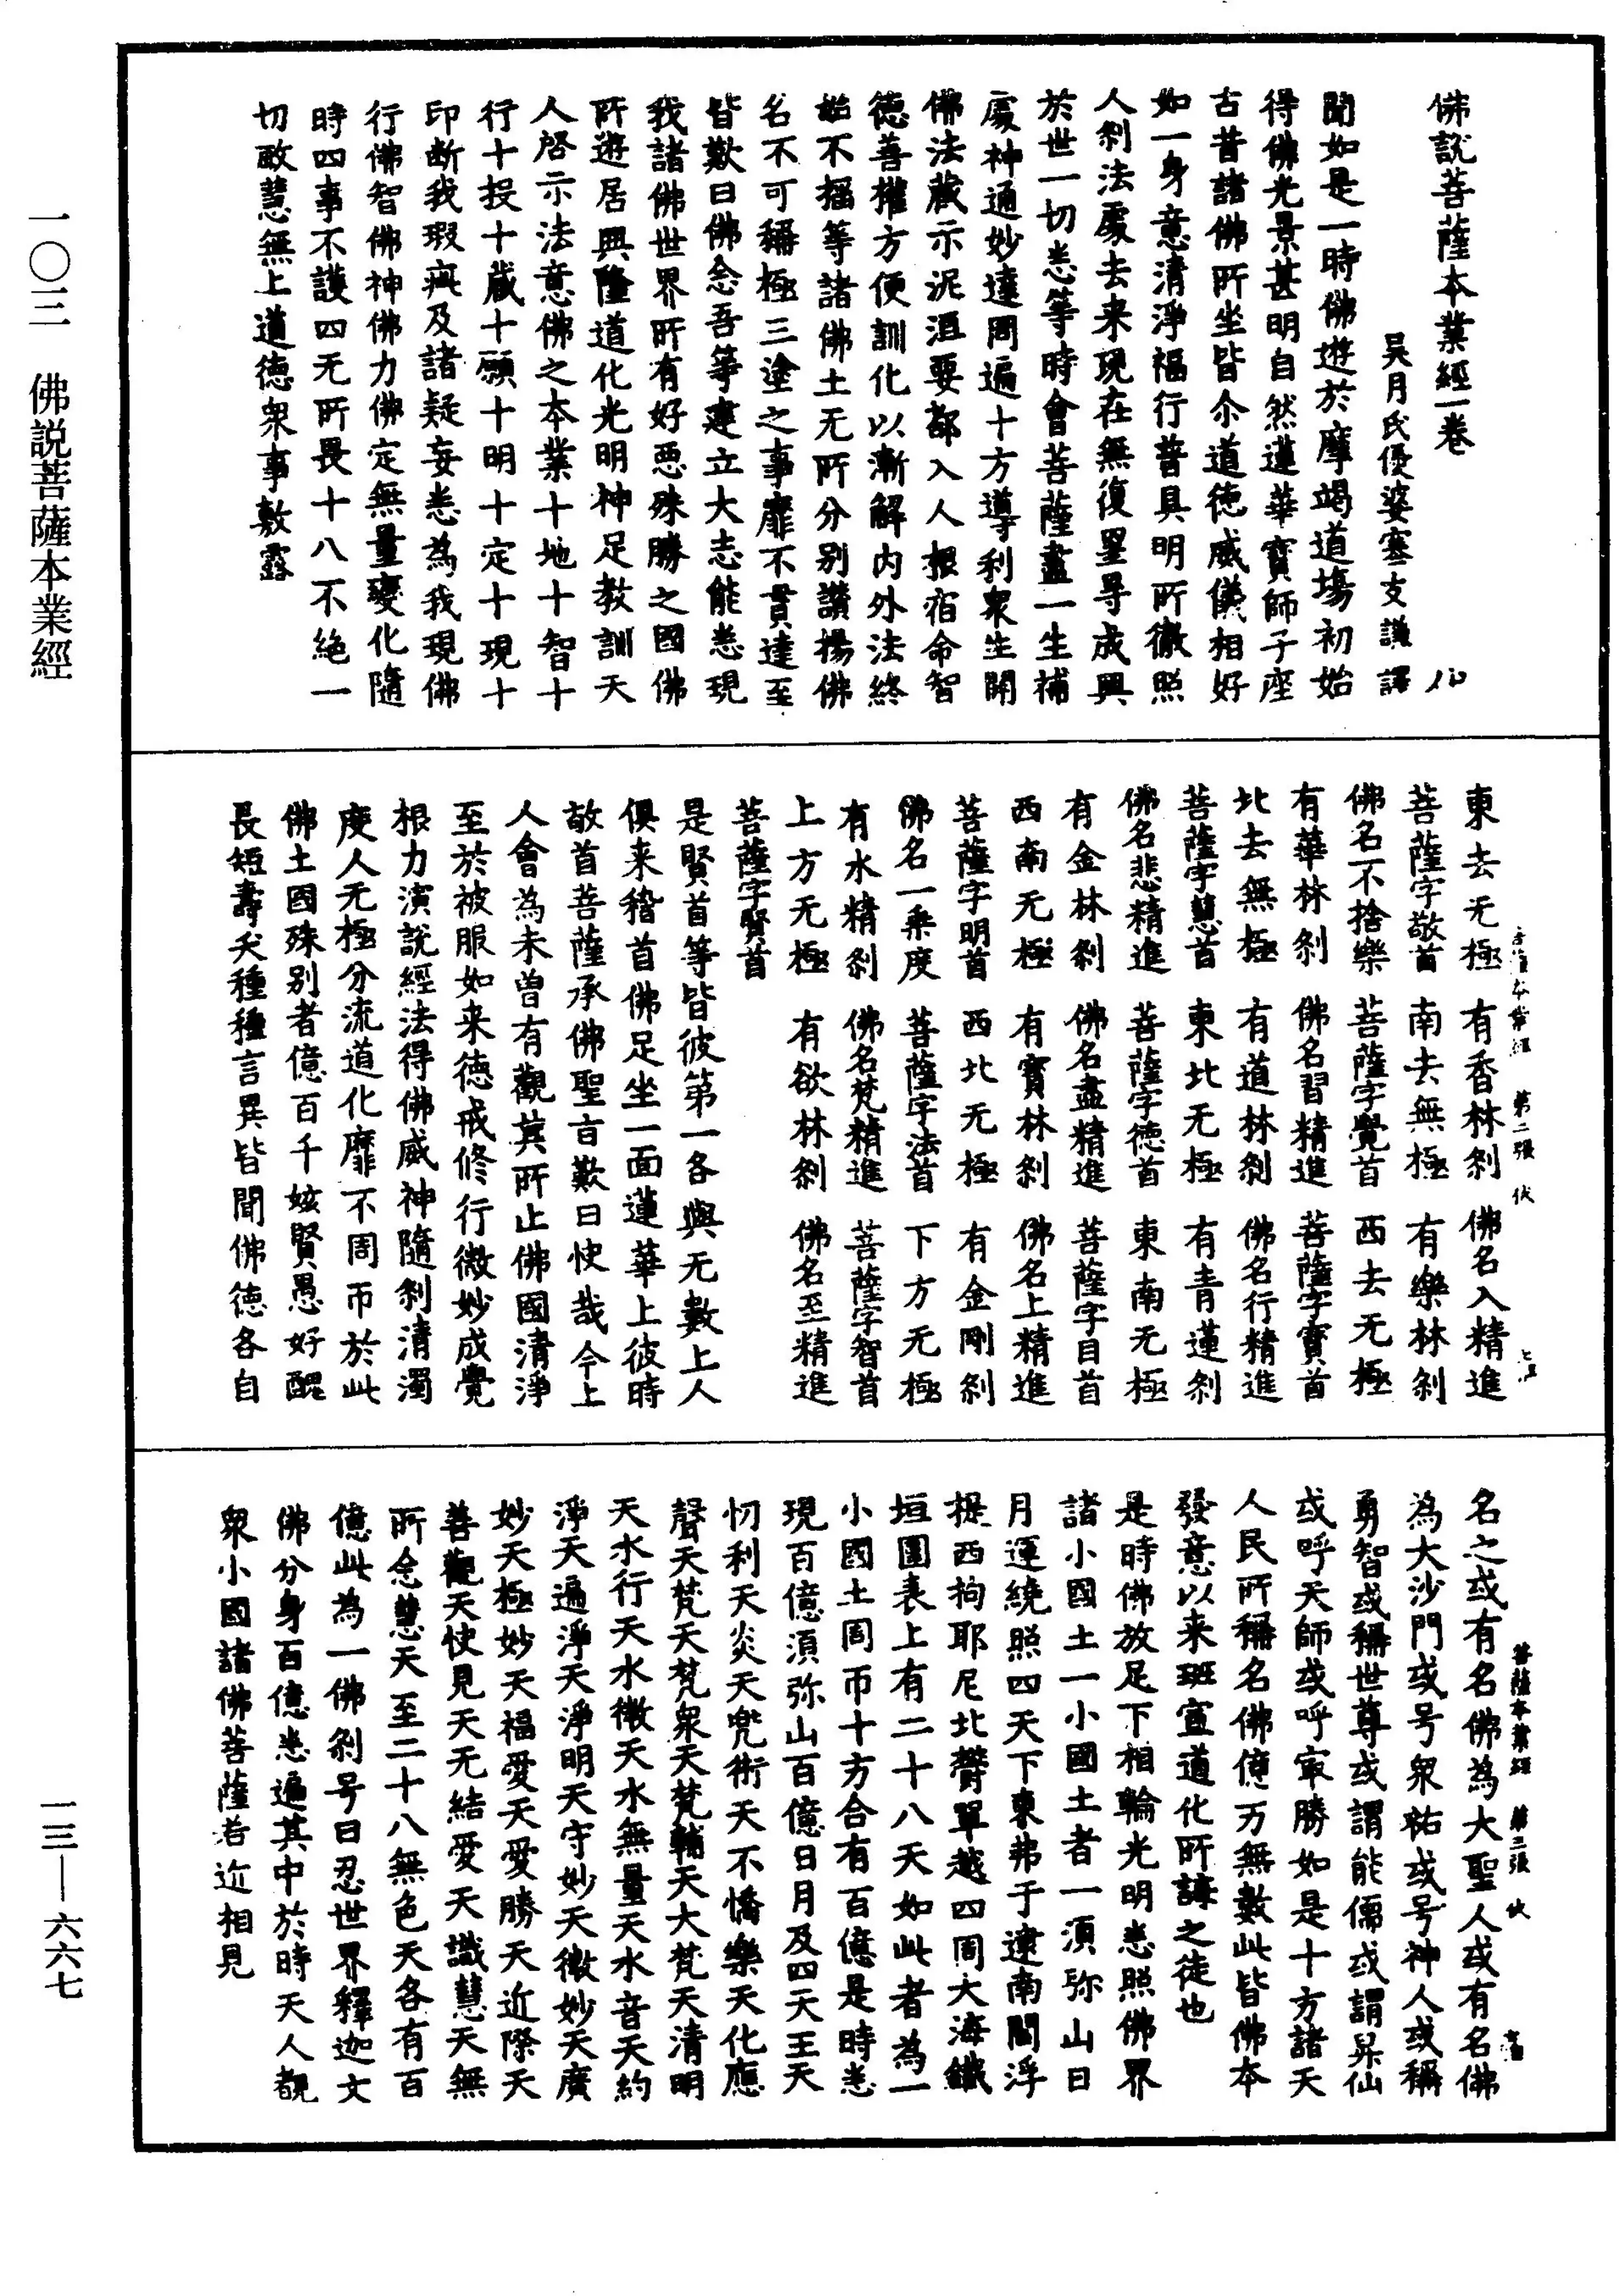 佛說菩薩本業經一卷
吳月氏優婆塞支謙譯
聞如是一時佛遊於摩竭道場初始
得佛光景甚明自然蓮華寶師子座
古昔諸佛所坐皆尒道德威儀相好
如一身意清淨福行普具明所徹照
人刹法處去来現在無復罣㝵成興
於世一切悉等時會菩薩盡一生補
處神通妙達周遍十方導利衆生開
佛法藏示泥洹要都入人根宿命智
德善權方便訓化以漸解内外法終
始不搖等諸佛土无所分别讚揚佛
名不可稱極三塗之事靡不貫達至
皆歎曰佛念吾等建立大志能悉現
我諸佛世界所有好惡殊勝之國佛
所遊居興隆道化光明神足教訓天
人啓示法意佛之本業十地十智十
行十投十藏十願十明十定十現十
印断我瑕疵及諸疑妄悉為我現佛
行佛智佛神佛力佛定無量變化隨
時四事不護四无所畏十八不絶一
切敢慧無上道德衆事敷露
東去无極 有香林刹 佛名入精進
菩薩字敬首 南去無極 有樂林刹
佛名不捨樂 菩薩字覺首 西去无極
有華林刹 佛名習精進 菩薩字寶首
北去無極 有道林刹 佛名行精進
菩薩字慧首 東北无極 有青蓮刹
佛名悲精進 菩薩字德首 東南无極
有金林刹 佛名盡精進 菩薩字目首
西南无極 有寳林刹 佛名上精進
菩薩字明首 西北无極 有金剛刹
佛名一乘度 菩薩字法首 下方无極
有水精刹 佛名梵精進 菩薩字智首
上方无極 有欲林刹 佛名至精進
菩薩字賢首
是賢首等皆彼第一各與无數上人
俱来稽首佛足坐一面蓮華上彼時
敬首菩薩承佛聖旨歎曰快哉今上
人會為未曾有觀其所止佛國清淨
至於被服如来德戒修行微妙成覺
根力演說經法得佛威神隨刹清濁
度人无極分流道化靡不周帀於此
佛土國殊别者億百千姟賢愚好醜
長短壽夭種種言異皆聞佛德各自
菩薩本業經 第三張 伏
名之或有名佛為大聖人或有名佛
為大沙門或号衆祐或号神人或稱
勇智或稱世尊或謂能儒或謂昇仙
或呼天師或呼最勝如是十方諸天
人民所稱名佛億万無數此皆佛本
發意以来班宣道化所謂之徒也
是時佛放足下相輪光明悉照佛界
諸小國土一小國土者一須弥山日
月運繞照四天下東弗于逮南閻浮
提西拘耶尼北欝單越四周大海鐵
垣圍表上有二十八天如此者為一
小國土周帀十方合有百億是時悉
現百億須弥山百億日月及四天王天
忉利天炎天兜術天不憍樂天化應
聲天梵天梵衆天梵輔天大梵天清明
天水行天水微天水無量天水音天約
淨天遍淨天淨明天守妙天微妙天廣
妙天極妙天福愛天愛勝天近際天
善觀天快見天无結愛天識慧天無
所念慧天至二十八無色天各有百
億此為一佛刹号曰忍世界釋迦文
佛分身百億悉遍其中於時天人覩
衆小國諸佛菩薩者近相見
一〇三 佛説菩薩本業經
一三—六六七